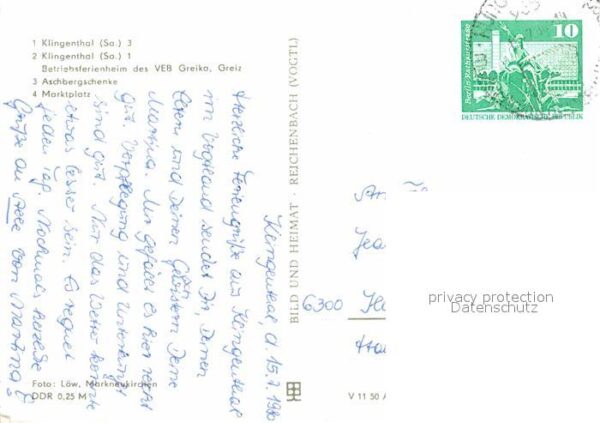 1 Klingenthal (Sa.) 3
2 Klingenthal (Sa.) 1
Betriebsferienheim des VEB Greika, Greiz
3 Aschbergschenke
4 Marktplatz
Klingenthal, d 15.7.1980
Herzliche Feriengrüße aus Klingenthal
im Vogtland sendet Dir, Deinen
Eltern und Deinen Geschwistern Deine
Martina. Mir gefällt es hier recht
gut. Verpflegung und Unterkunft
sind gut. Nur das Wetter könnte
etwas besser sein. Es regnet
jeden Tag. Nochmals herzliche
Grüße an Alle von Martina
Foto: Löw, Markneukirchen
DDR 0,25 M
BILD UND HEIMAT · REICHENBACH (VOGTL)
V 11 50 A
10
Berlin, Rathausstraße
DEUTSCHE DEMOKRATISCHE REPUBLIK
An
6300
privacy protection
Datenschutz